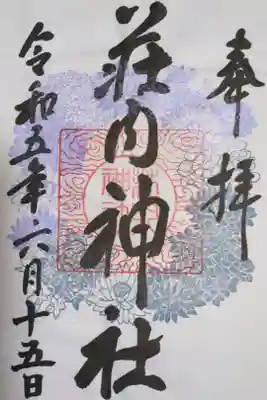 奉拝
荘内神社
令和五年六月十五日